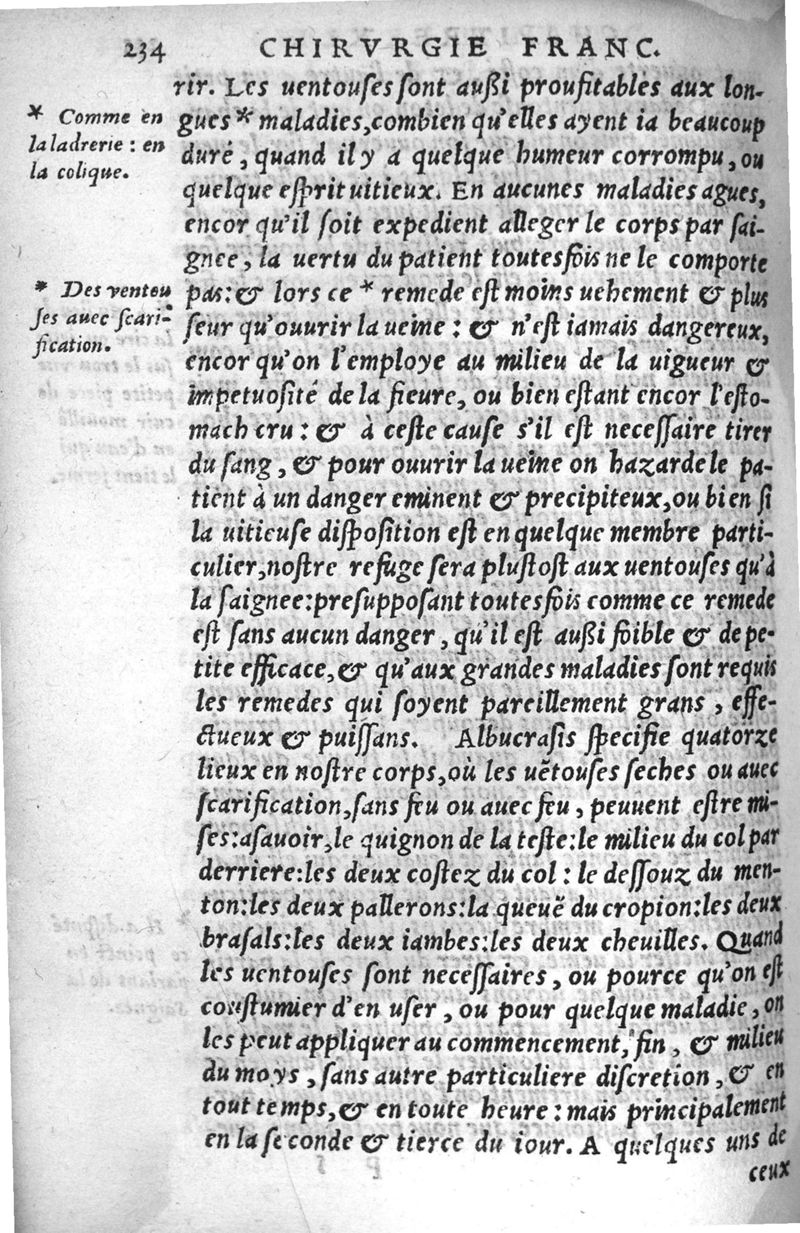 234 CHIRVRGIE FRANC.
rir. Les uentouses sont außi proufitables aux lon-
gues * maladies, combien qu'elles ayent ia beaucoup
duré, quand il y a quelque humeur corrompu, ou
quelque esprit uitieux. En aucunes maladies agues,
encor qu'il soit expedient alleger le corps par sai-
gnee, la uertu du patient toutesfois ne le comporte
pas: & lors ce * remede est moins uehement & plus
seur qu'ouurir la ueine : & n'est iamais dangereux,
encor qu'on l'employe au milieu de la uigueur &
impetuosité de la fieure, ou bien estant encor l'esto-
mach cru : & à ceste cause s'il est necessaire tirer
du sang, & pour ouurir la ueine on hazarde le pa-
tient à un danger eminent & precipiteux, ou bien si
la uitieuse disposition est en quelque membre parti-
culier, nostre refuge sera plustost aux uentouses qu'à
la saignee: presupposant toutesfois comme ce remede
est sans aucun danger, qu'il est außi foible & de pe-
tite efficace, & qu'aux grandes maladies sont requis
les remedes qui soyent pareillement grans, effe-
ctueux & puissans. Albucrasis specifie quatorze
lieux en nostre corps, où les uẽtouses seches ou auec
scarification, sans feu ou auec feu, peuuent estre mi-
ses: asauoir, le quignon de la teste: le milieu du col par
derriere: les deux costez du col : le dessouz du men-
ton: les deux pallerons: la queuë du cropion: les deux
brasals: les deux iambes: les deux cheuilles. Quand
les uentouses sont necessaires, ou pource qu'on est
coustumier d'en user, ou pour quelque maladie, on
les peut appliquer au commencement, fin, & milieu
du moys, sans autre particuliere discretion, & en
tout temps, & en toute heure : mais principalement
en la seconde & tierce du iour. A quelques uns de
ceux
* Comme en
la ladrerie : en
la colique.
* Des ventou
ses auec scari-
fication.